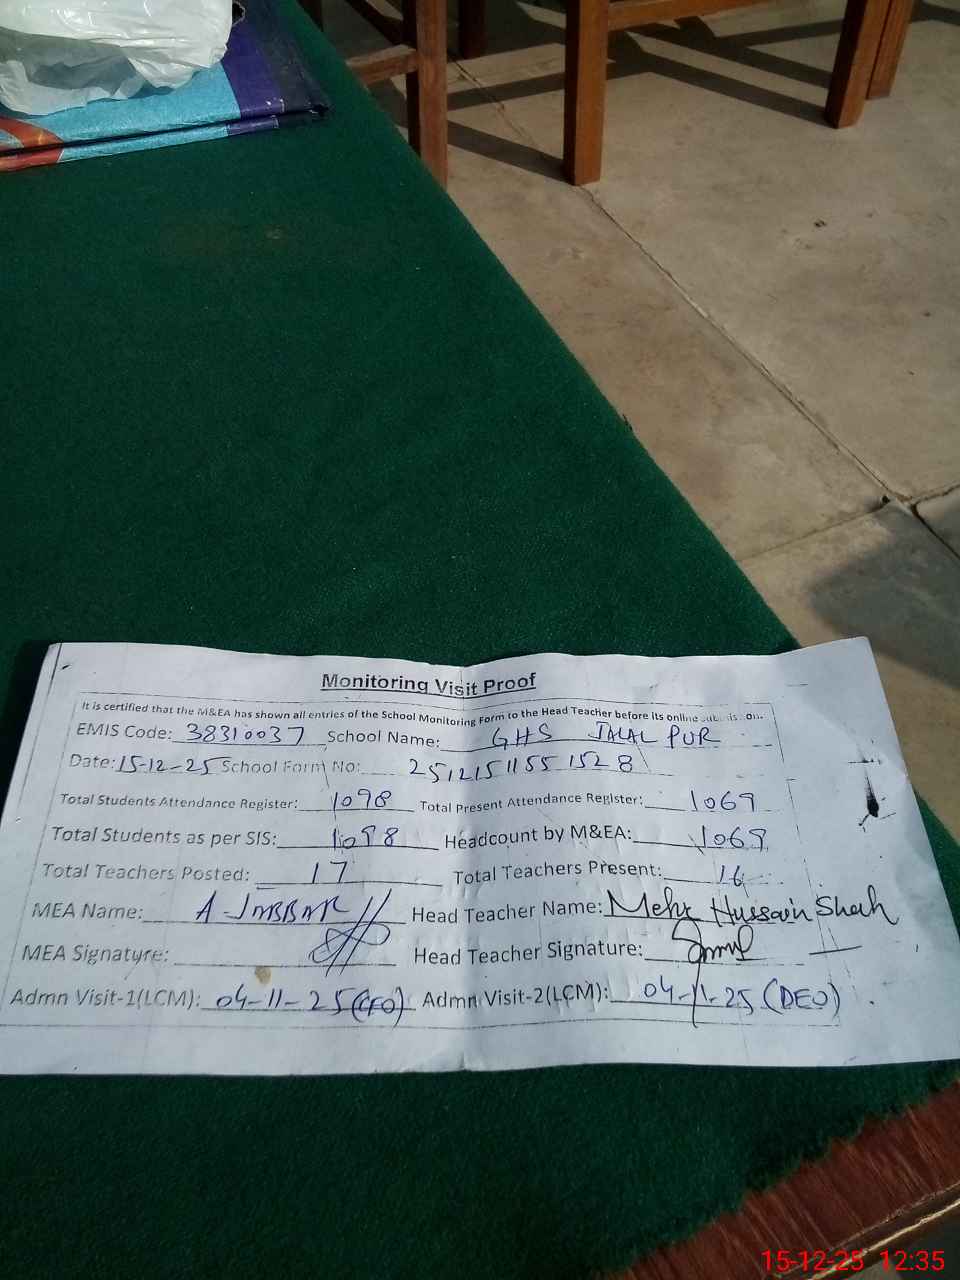 Monitoring Visit Proof
It is certified that the M&EA has shown all entries of the School Monitoring Form to the Head Teacher before its online submission.
EMIS Code: 38310037 School Name: GHS JALAL PUR
Date: 15-12-25 School Form No: 25121511551528
Total Students Attendance Register: 1098 Total Present Attendance Register: 1069
Total Students as per SIS: 1098 Headcount by M&EA: 1069
Total Teachers Posted: 17 Total Teachers Present: 16
MEA Name: A-JABBAR Head Teacher Name: Mehr Hussain Shah
MEA Signature: Head Teacher Signature:
Admn Visit-1(LCM): 04-11-25 (CEO) Admn Visit-2(LCM): 04-11-25 (DEO)
15-12-25 12:35